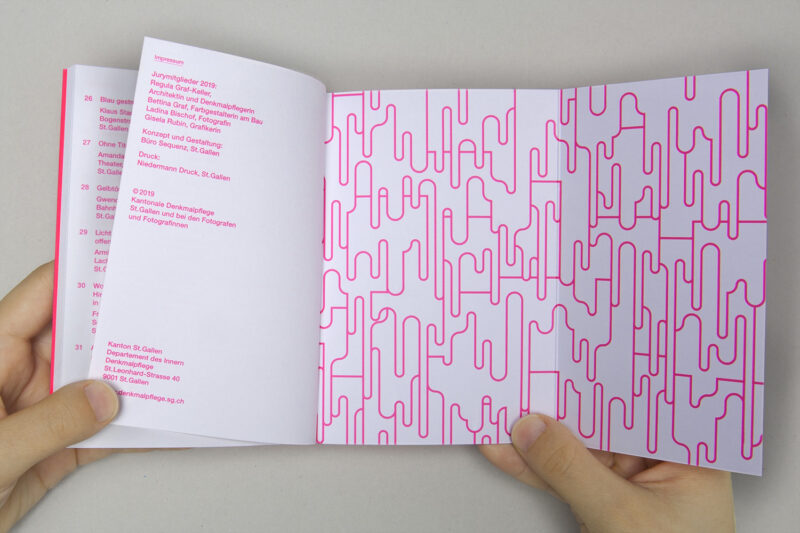 26 Blau
Klaus
Bogen
St.Gallen
27 Ohne
Amanda
Theater,
St.Galle
28
Gwen
Bahn
St.G
29 Licht
offer
St.G
30
Hin
in
31
Impressum
Jurymitglieder 2019:
Regula Graf-Keller,
Architektin und Denkmalpflegerin
Bettina Graf, Farbgestalterin am Bau
Ladina Bischof, Fotografin
Gisela Rubin, Grafikerin
Konzept und Gestaltung:
Büro Sequenz, St.Gallen
Druck:
Niedermann Druck, St.Gallen
© 2019
Kantonale Denkmalpflege
St.Gallen und bei den Fotografen
und Fotografinnen
Kanton St.Gallen
Departement des Innern
Denkmalpflege
St.Leonhard-Strasse 40
9001 St.Gallen
denkmalpflege.sg.ch